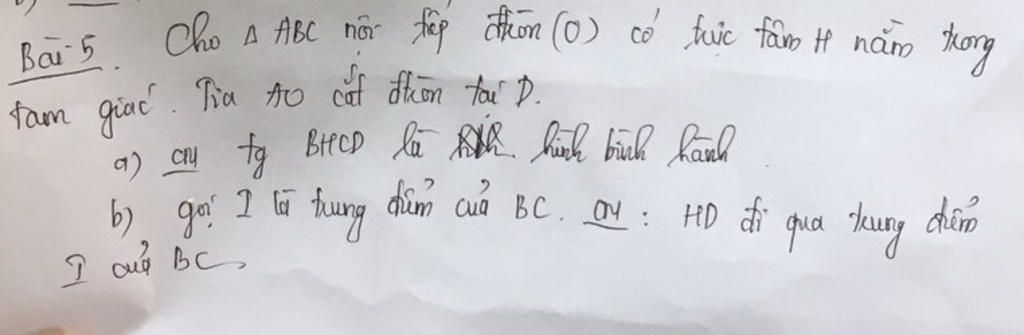 Bài 5. Cho Δ ABC nội tiếp đtròn (O) có trực tâm H nằm trong
tam giác. Tia AO cắt đtròn tại D.
a) CM tg BHCD là hình bình hành
b) gọi I là trung điểm của BC. CM: HD đi qua trung điểm
I của BC